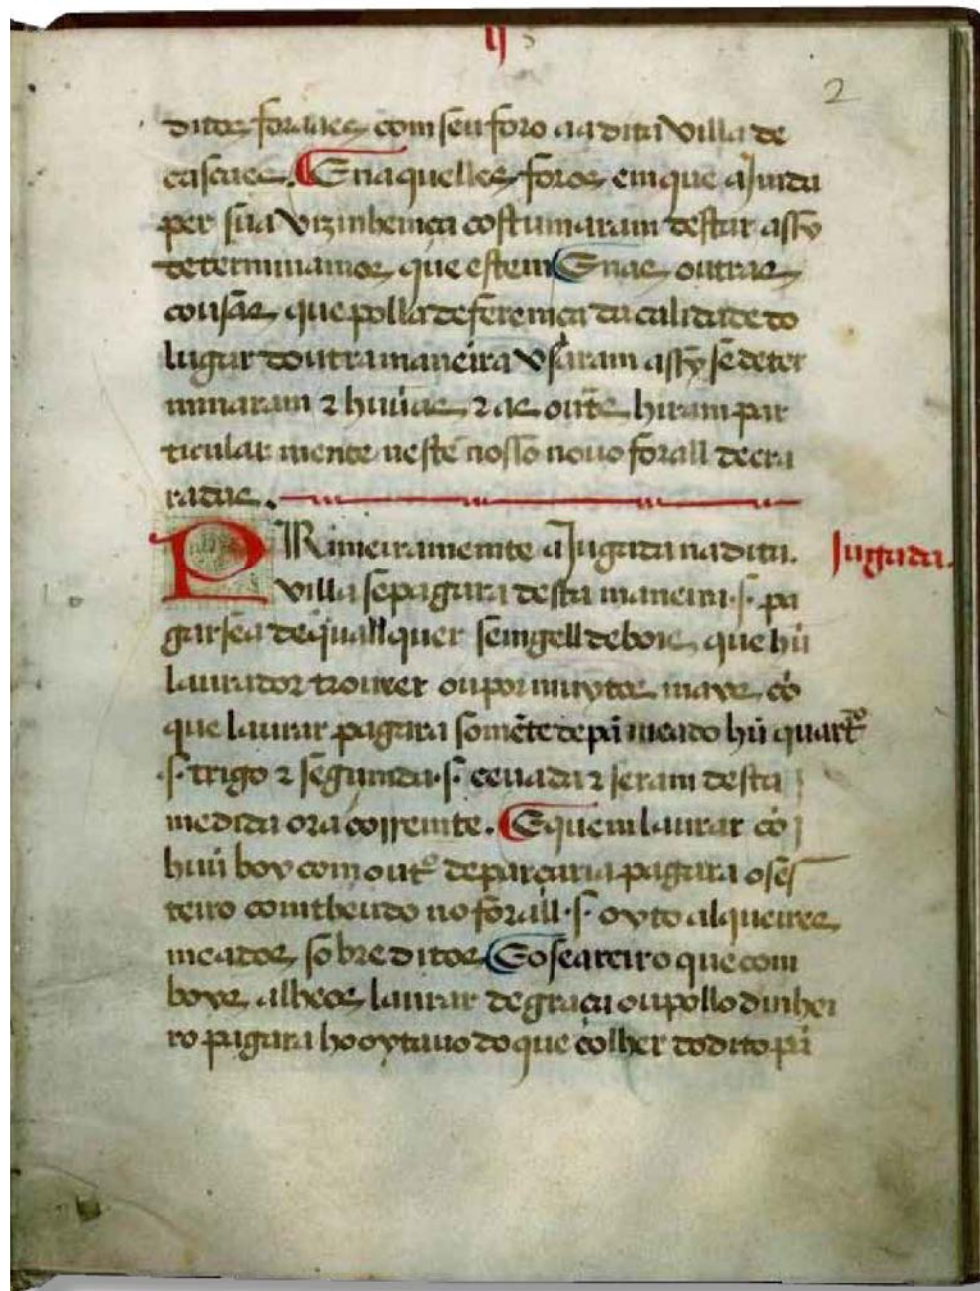 ij
2
ditos foraaes com seu foro aa dita villa de
cascaes. E naquelles foros em que ajnda
per sua vizinhença costumaram destar assy
determinamos que estem E nas outras
cousas que polla deferemça da calidade do
lugar doutra maneira vsaram assy se deter
minaram ⁊ huũas ⁊ as outs hiram par
ticular mente neste nosso nouo forall decra
radas.
PRimeiramemte a Jugada na dita
Jugada.
villa se pagara desta maneira .s. pa
garsea de quallquer semgell de bois que hũ
laurador trouxer ou por muytos mays cõ
que laurar pagara somẽte de pã meado hũ quartro
.s. trigo ⁊ segumda .s. ceuada ⁊ seram desta
medida ora corremte. E quem laurar cõ
huũ boy com outro de parçaria pagara o ses
teiro comtheudo no forall .s. oyto alqueires
meados sobreditos E o seareiro que com
boys alheos laurar de graça ou pollo dinhei
ro pagara ho oytauo do que colher do dito pã